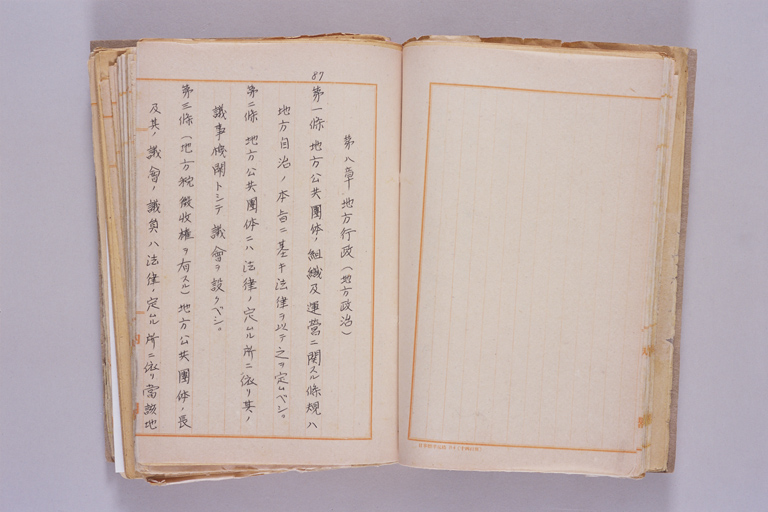 87
第八章 地方行政(地方政治)
第一條 地方公共團体ノ組織及運営ニ関スル條規ハ
地方自治ノ本旨ニ基キ法律ヲ以テ之ヲ定ムベシ。
第二條 地方公共團体ニハ法律ノ定ムル所ニ依リ其ノ
議事機関トシテ議會ヲ設クベシ。
第三條(地方税徴收権ヲ有スル)地方公共團体ノ長
及其ノ議會ノ議員ハ法律ノ定ムル所ニ依リ當該地